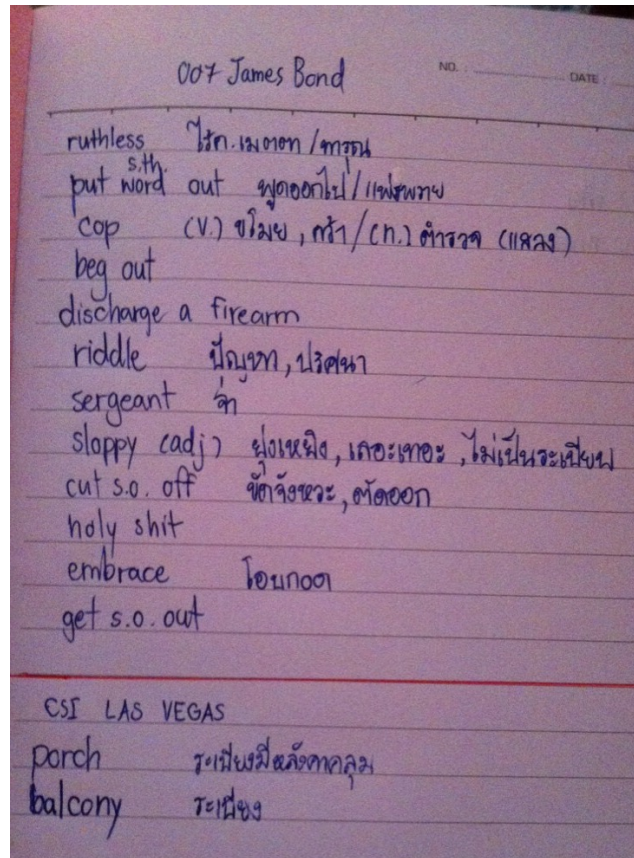 007 James Bond NO. : DATE :
ruthless ไร้ค.เมตตา / ทารุณ
s.th.
put word out พูดออกไป / แพร่พราย
cop (v.) ขโมย, คว้า / (n.) ตำรวจ (แสลง)
beg out
discharge a firearm
riddle ปัญหา, ปริศนา
sergeant จ่า
sloppy (adj) ยุ่งเหยิง, เลอะเทอะ, ไม่เป็นระเบียบ
cut s.o. off ขัดจังหวะ, ตัดออก
holy shit
embrace โอบกอด
get s.o. out
CSI LAS VEGAS
porch ระเบียงมีหลังคาคลุม
balcony ระเบียง